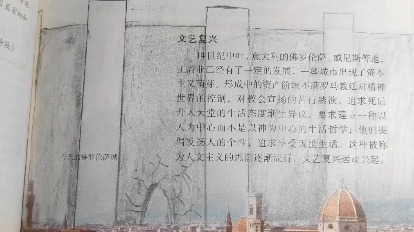 文艺复兴
14世纪中叶，意大利的佛罗伦萨、威尼斯等地，
工商业已经有了一定的发展，一些城市出现了资本
主义萌芽。形成中的资产阶级不满罗马教廷对精神
世界的控制，对教会宣扬的苦行禁欲、追求死后
升入天堂的生活态度产生异议，要求建立一种以
人为中心而不是以神为中心的生活哲学；他们提
倡发扬人的个性，追求享受现世生活。这种被称
为人文主义的思潮逐渐流行，文艺复兴运动兴起。
今天的佛罗伦萨城